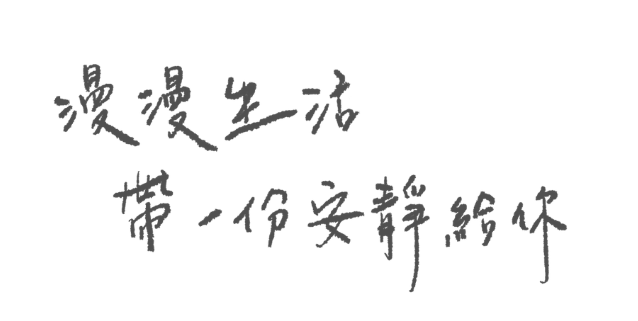 漫漫生活
帶一份安靜給你